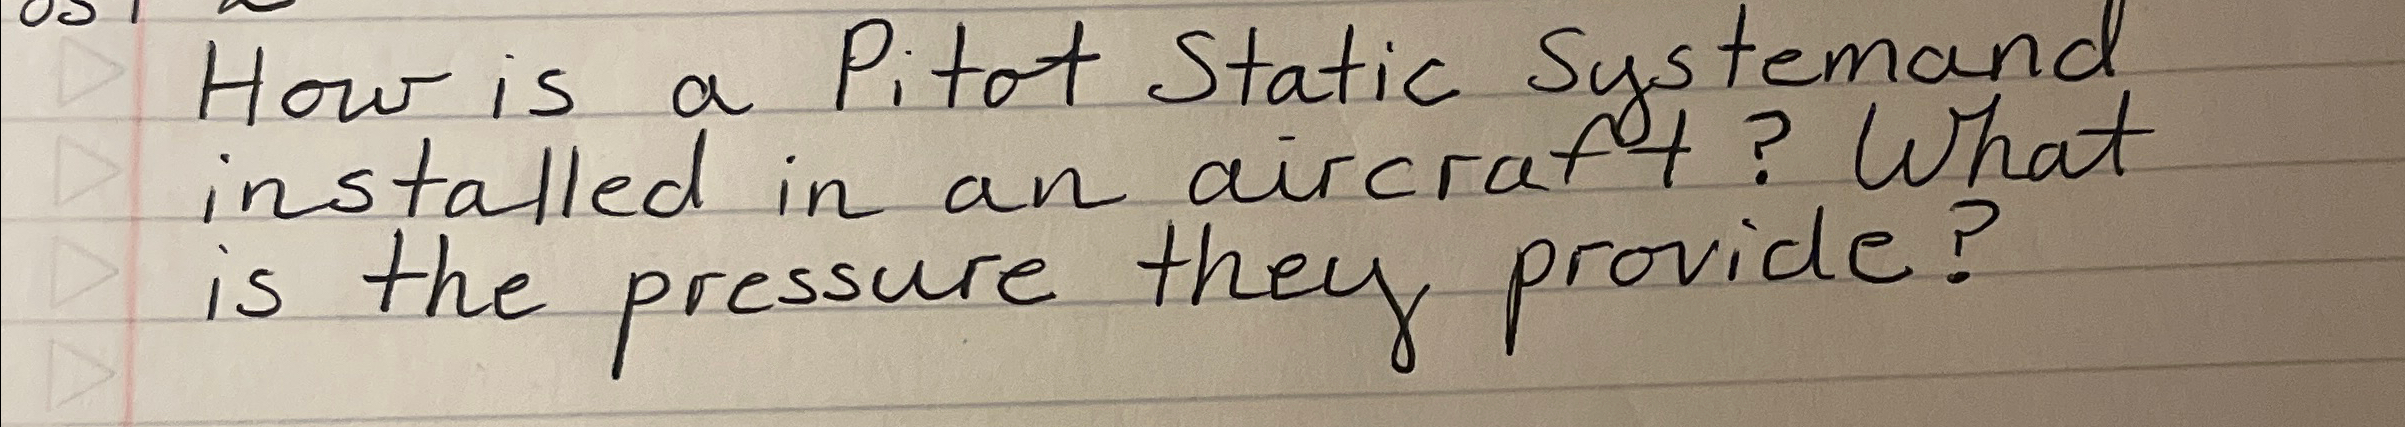 How is a Pitot Static Systemand
installed in an aircraft? What
is the pressure they provide?